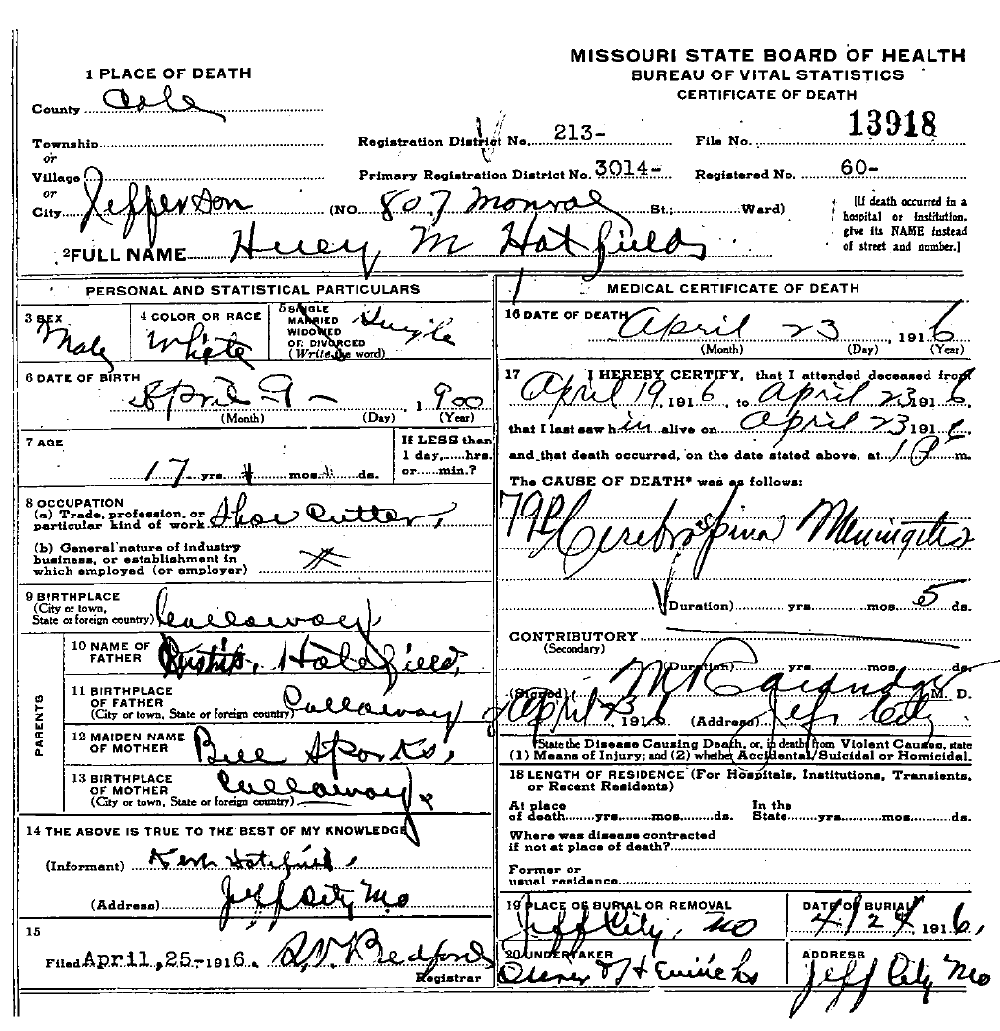 MISSOURI STATE BOARD OF HEALTH
BUREAU OF VITAL STATISTICS
CERTIFICATE OF DEATH
1 PLACE OF DEATH
County Cole
Township
or
Village
or
City Jefferson (NO. 807 Monroe St.; Ward)
Registration District No. 213-
File No. 13918
Primary Registration District No. 3014-
Registered No. 60-
[If death occurred in a
hospital or institution,
give its NAME instead
of street and number.]
2 FULL NAME Huey M Hatfields
PERSONAL AND STATISTICAL PARTICULARS
3 SEX Male
4 COLOR OR RACE White
5 SINGLE
MARRIED
WIDOWED
OR DIVORCED
(Write the word) Single
6 DATE OF BIRTH
April 9 - 1900
(Month) (Day) (Year)
7 AGE
17 yrs. mos. ds.
If LESS than
1 day, hrs.
or min.?
8 OCCUPATION
(a) Trade, profession, or
particular kind of work Shoe Cutter,
(b) General nature of industry
business, or establishment in
which employed (or employer)
9 BIRTHPLACE
(City or town,
State or foreign country) Callaway
PARENTS
10 NAME OF
FATHER Hatfield,
11 BIRTHPLACE
OF FATHER
(City or town, State or foreign country) Callaway
12 MAIDEN NAME
OF MOTHER Bell Sparks,
13 BIRTHPLACE
OF MOTHER
(City or town, State or foreign country) Callaway
14 THE ABOVE IS TRUE TO THE BEST OF MY KNOWLEDGE
(Informant) Hatfield,
(Address) Jeff City Mo
15
Filed April, 25-1916. Bedford
Registrar
MEDICAL CERTIFICATE OF DEATH
16 DATE OF DEATH
April 23, 1916
(Month) (Day) (Year)
17 I HEREBY CERTIFY, that I attended deceased from
April 19, 1916, to April 23 1916,
that I last saw him alive on April 23 1916,
and that death occurred, on the date stated above, at 1 P m.
The CAUSE OF DEATH* was as follows:
Cerebrospinal Meningitis
(Duration) yrs. mos. 5 ds.
CONTRIBUTORY
(Secondary)
(Duration) yrs. mos. ds.
(Signed) M. D.
April 23, 1916 (Address) Jeff City
*State the Disease Causing Death, or, in death from Violent Causes, state
(1) Means of Injury; and (2) whether Accidental, Suicidal or Homicidal.
18 LENGTH OF RESIDENCE (For Hospitals, Institutions, Transients,
or Recent Residents)
At place
of death yrs. mos. ds.
In the
State yrs. mos. ds.
Where was disease contracted
if not at place of death?
Former or
usual residence
19 PLACE OF BURIAL OR REMOVAL
Jeff City, Mo
DATE OF BURIAL
4/24 1916,
20 UNDERTAKER
ADDRESS
Jeff City Mo